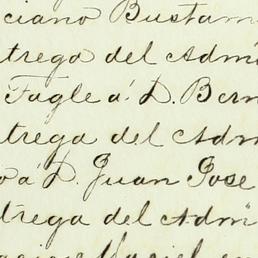 ciano Bustam
trega del Admi
Tagle á D. Bern
trega del Adm
o á D. Juan Jose
trega del Adm